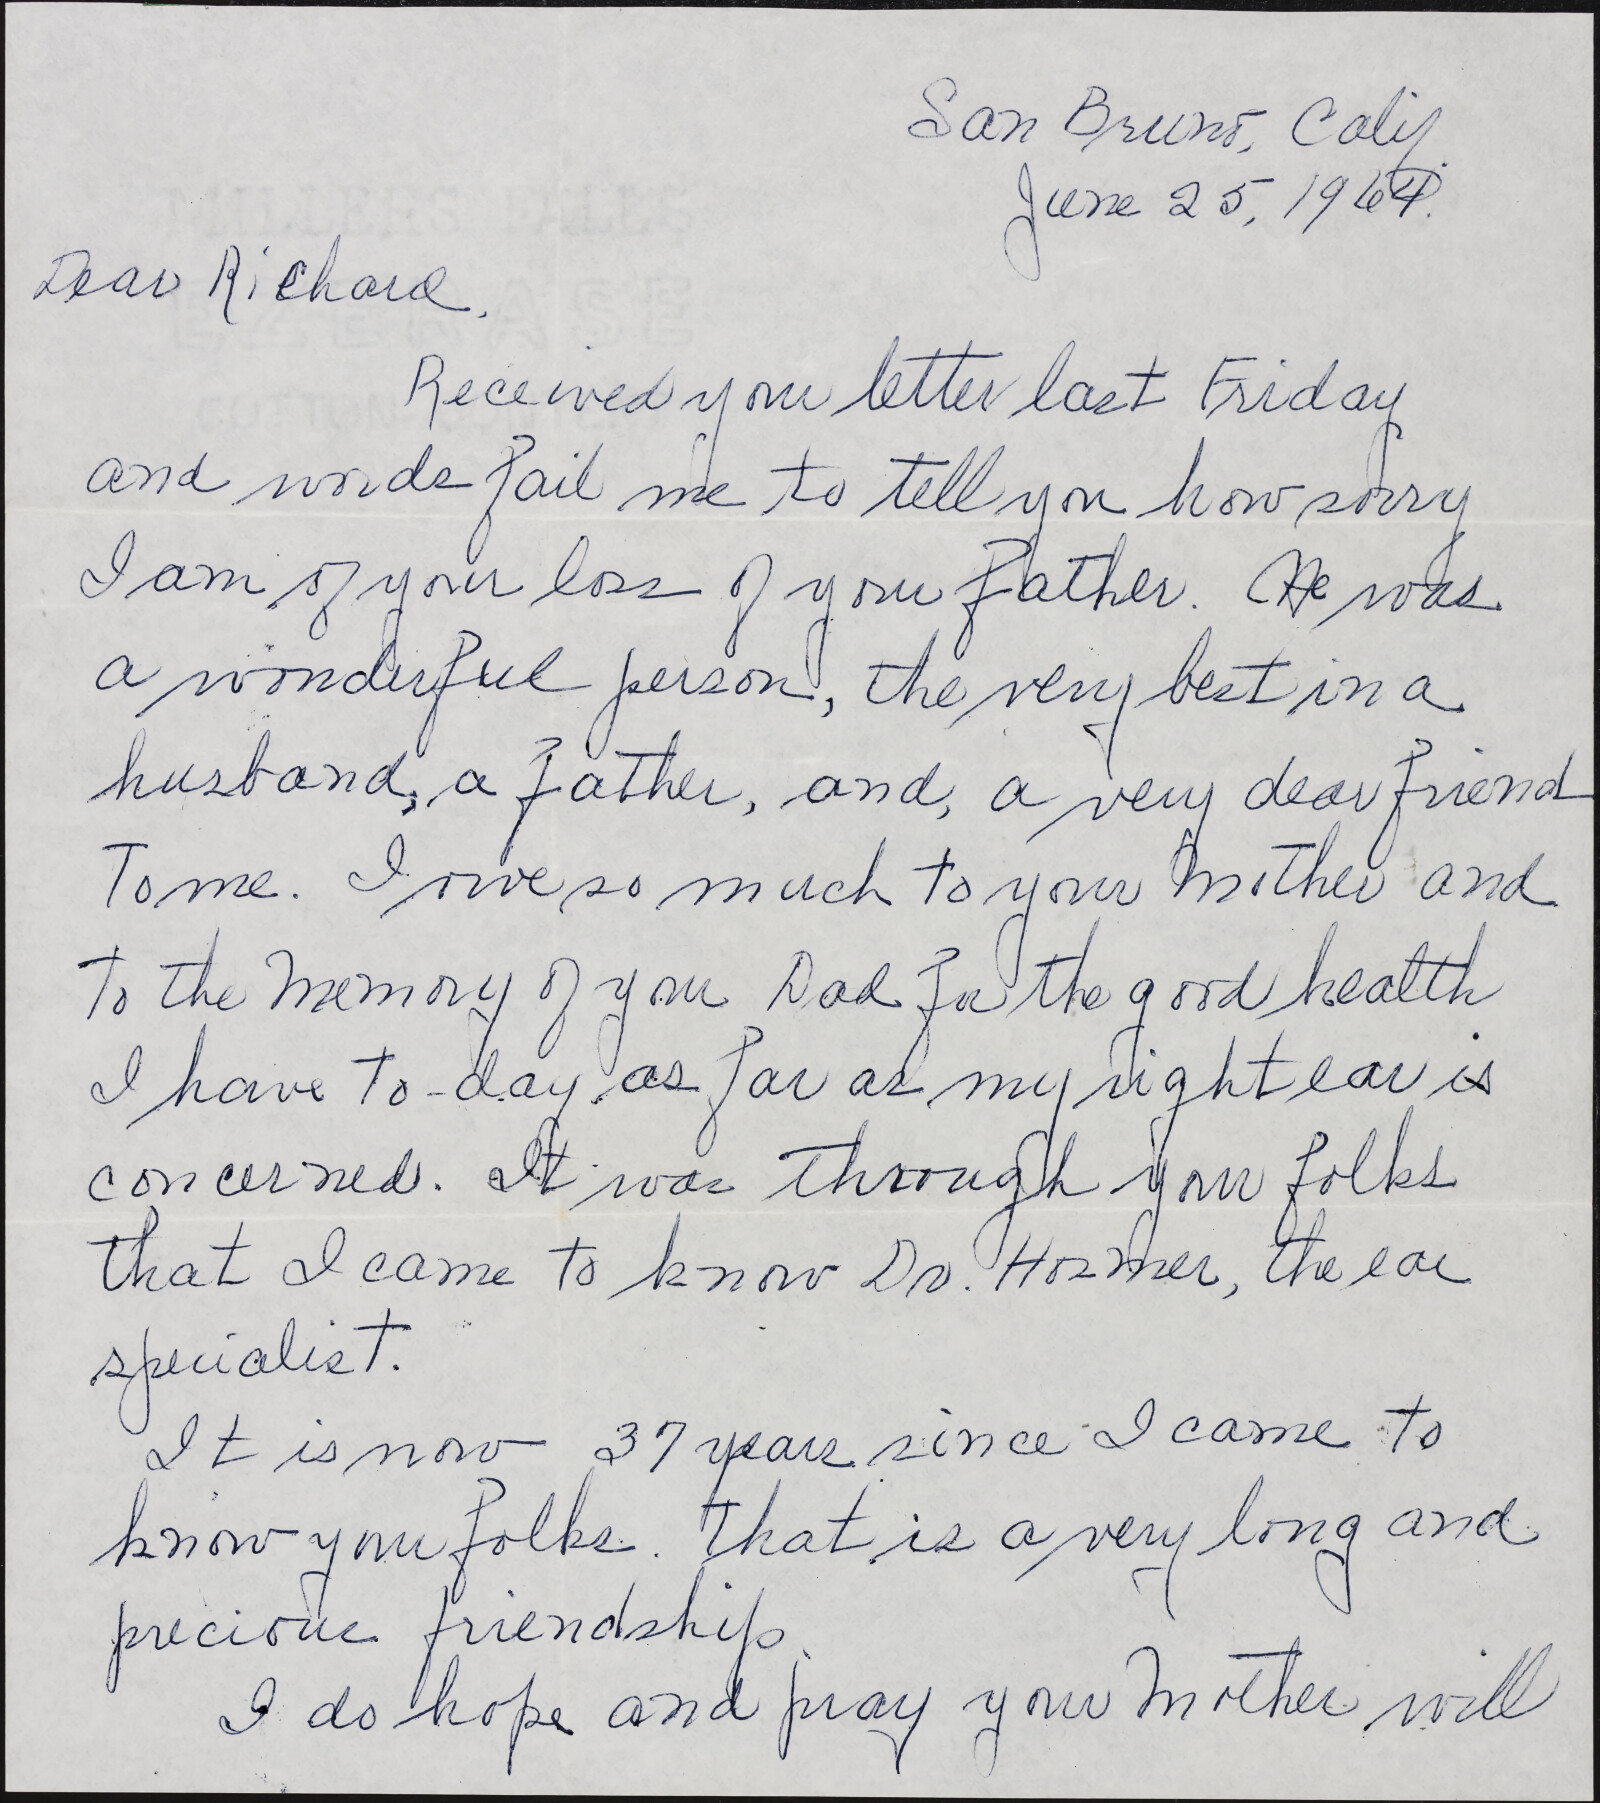 San Bruno, Calif.
June 25, 1964.
Dear Richard,
Received your letter last Friday
and words fail me to tell you how sorry
I am of your loss of your Father. He was
a wonderful person, the very best in a
husband, a father, and, a very dear friend
To me. I owe so much to your Mother and
to the Memory of your Dad for the good health
I have to-day as far as my right ear is
concerned. It was through your folks
that I came to know Dr. Hosmer, the ear
specialist.
It is now 37 years since I came to
know your folks. That is a very long and
precious friendship.
I do hope and pray your Mother will